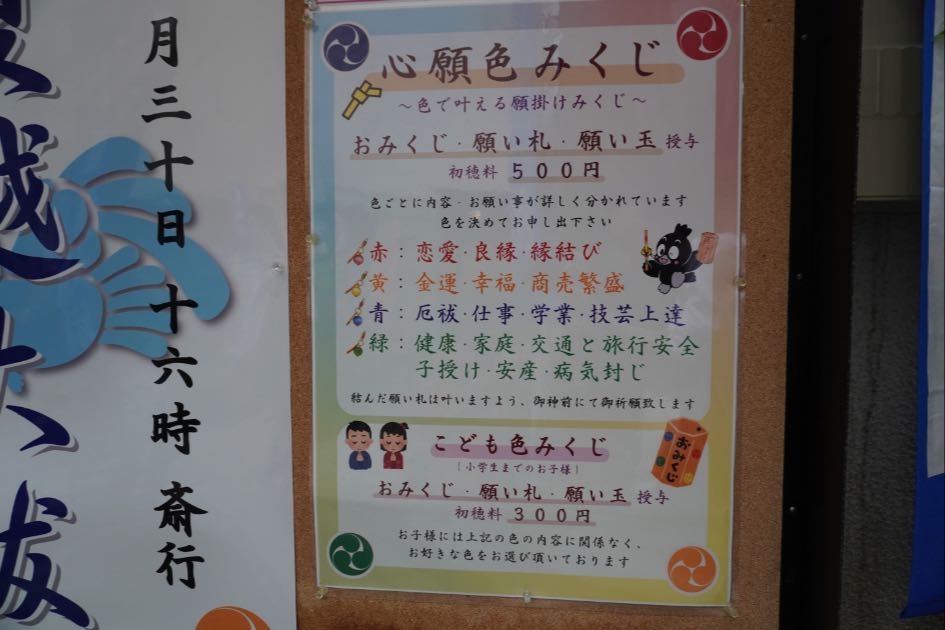 心願色みくじ
～色で叶える願掛けみくじ～
おみくじ・願い札・願い玉 授与
初穂料 500円
色ごとに内容・お願い事が詳しく分かれています
色を決めてお申し出下さい
赤：恋愛・良縁・縁結び
黄：金運・幸福・商売繁盛
青：厄祓・仕事・学業・技芸上達
緑：健康・家庭・交通と旅行安全
子授け・安産・病気封じ
結んだ願い札は叶いますよう、御神前にて御祈願致します
こども色みくじ
（小学生までのお子様）
おみくじ・願い札・願い玉 授与
初穂料 300円
お子様には上記の色の内容に関係なく、
お好きな色をお選び頂いております
おみくじ
月三十日 十六時 斎行